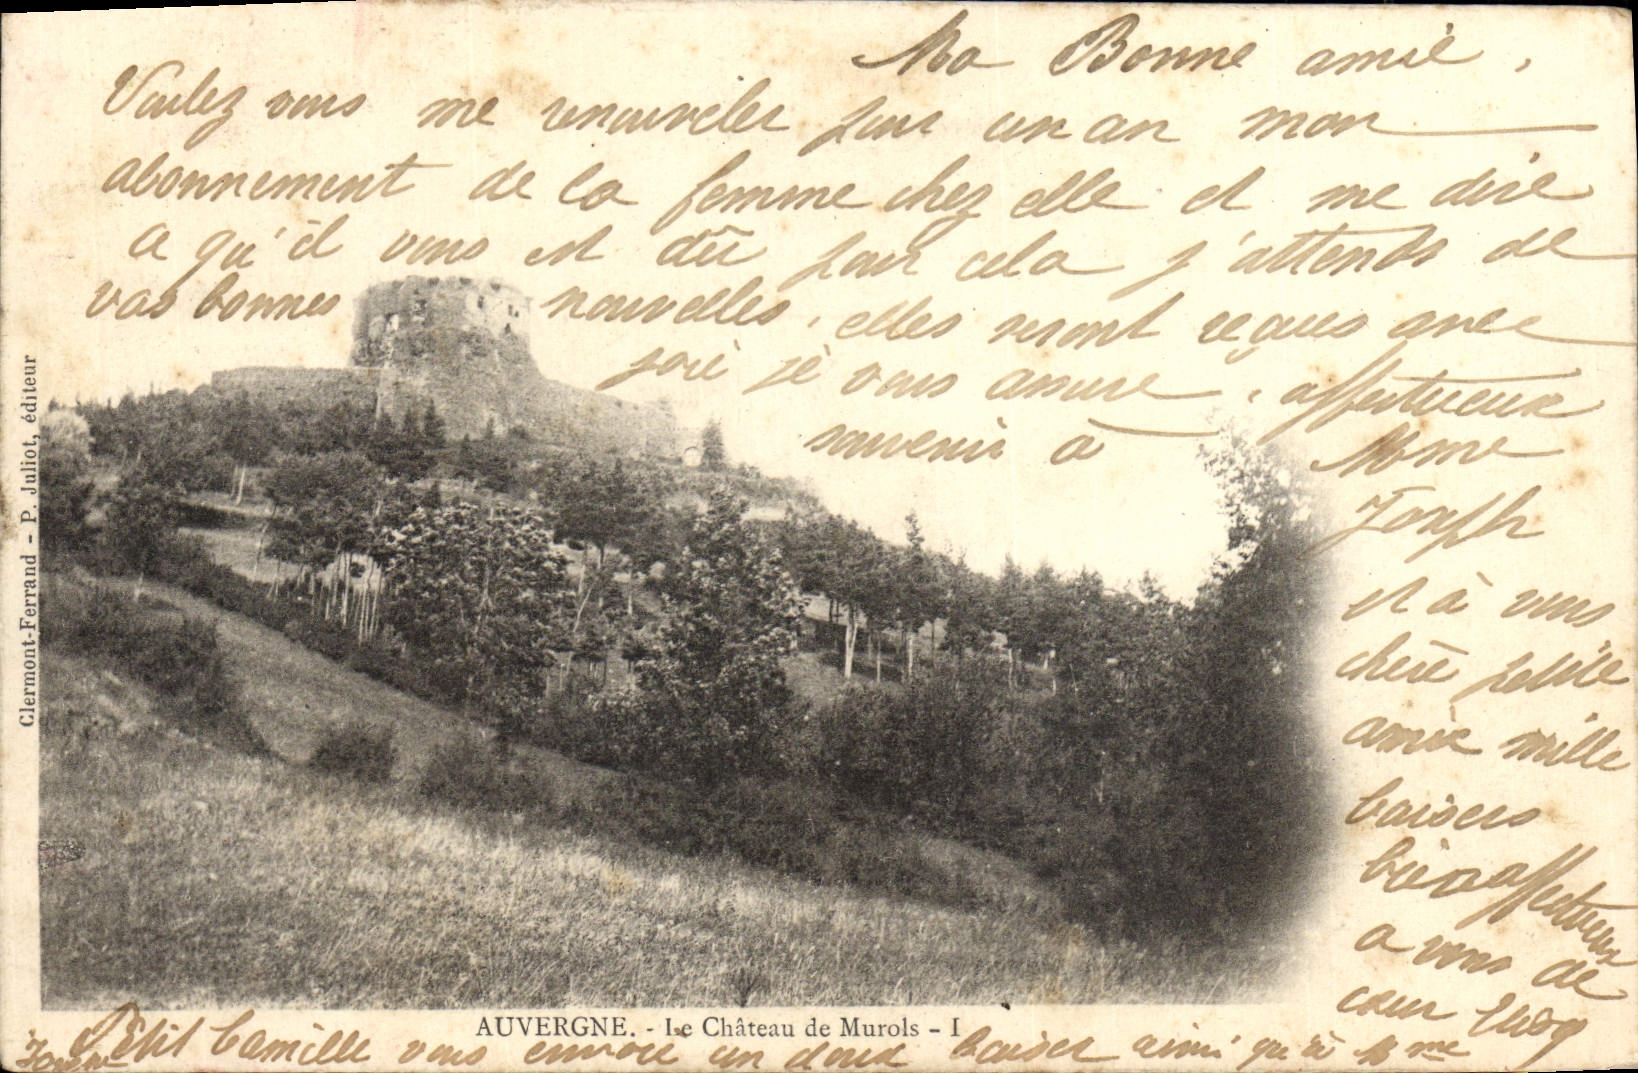 Ma Bonne amie,
Voulez vous me renouveler pour un an mon
abonnement de la femme chez elle et me dire
ce qu'il vous est dû pour cela j'attends de
vos bonnes nouvelles, elles seront reçues avec
joie je vous assure, affectueux
souvenir à Mme
Joseph
et à vous
chère petite
amie mille
baisers
bien affectueux
a vous de
cœur
Petit Camille vous envoie un doux baiser ainsi qu'à Mme
AUVERGNE. - Le Château de Murols - I
Clermont-Ferrand - P. Juliot, éditeur